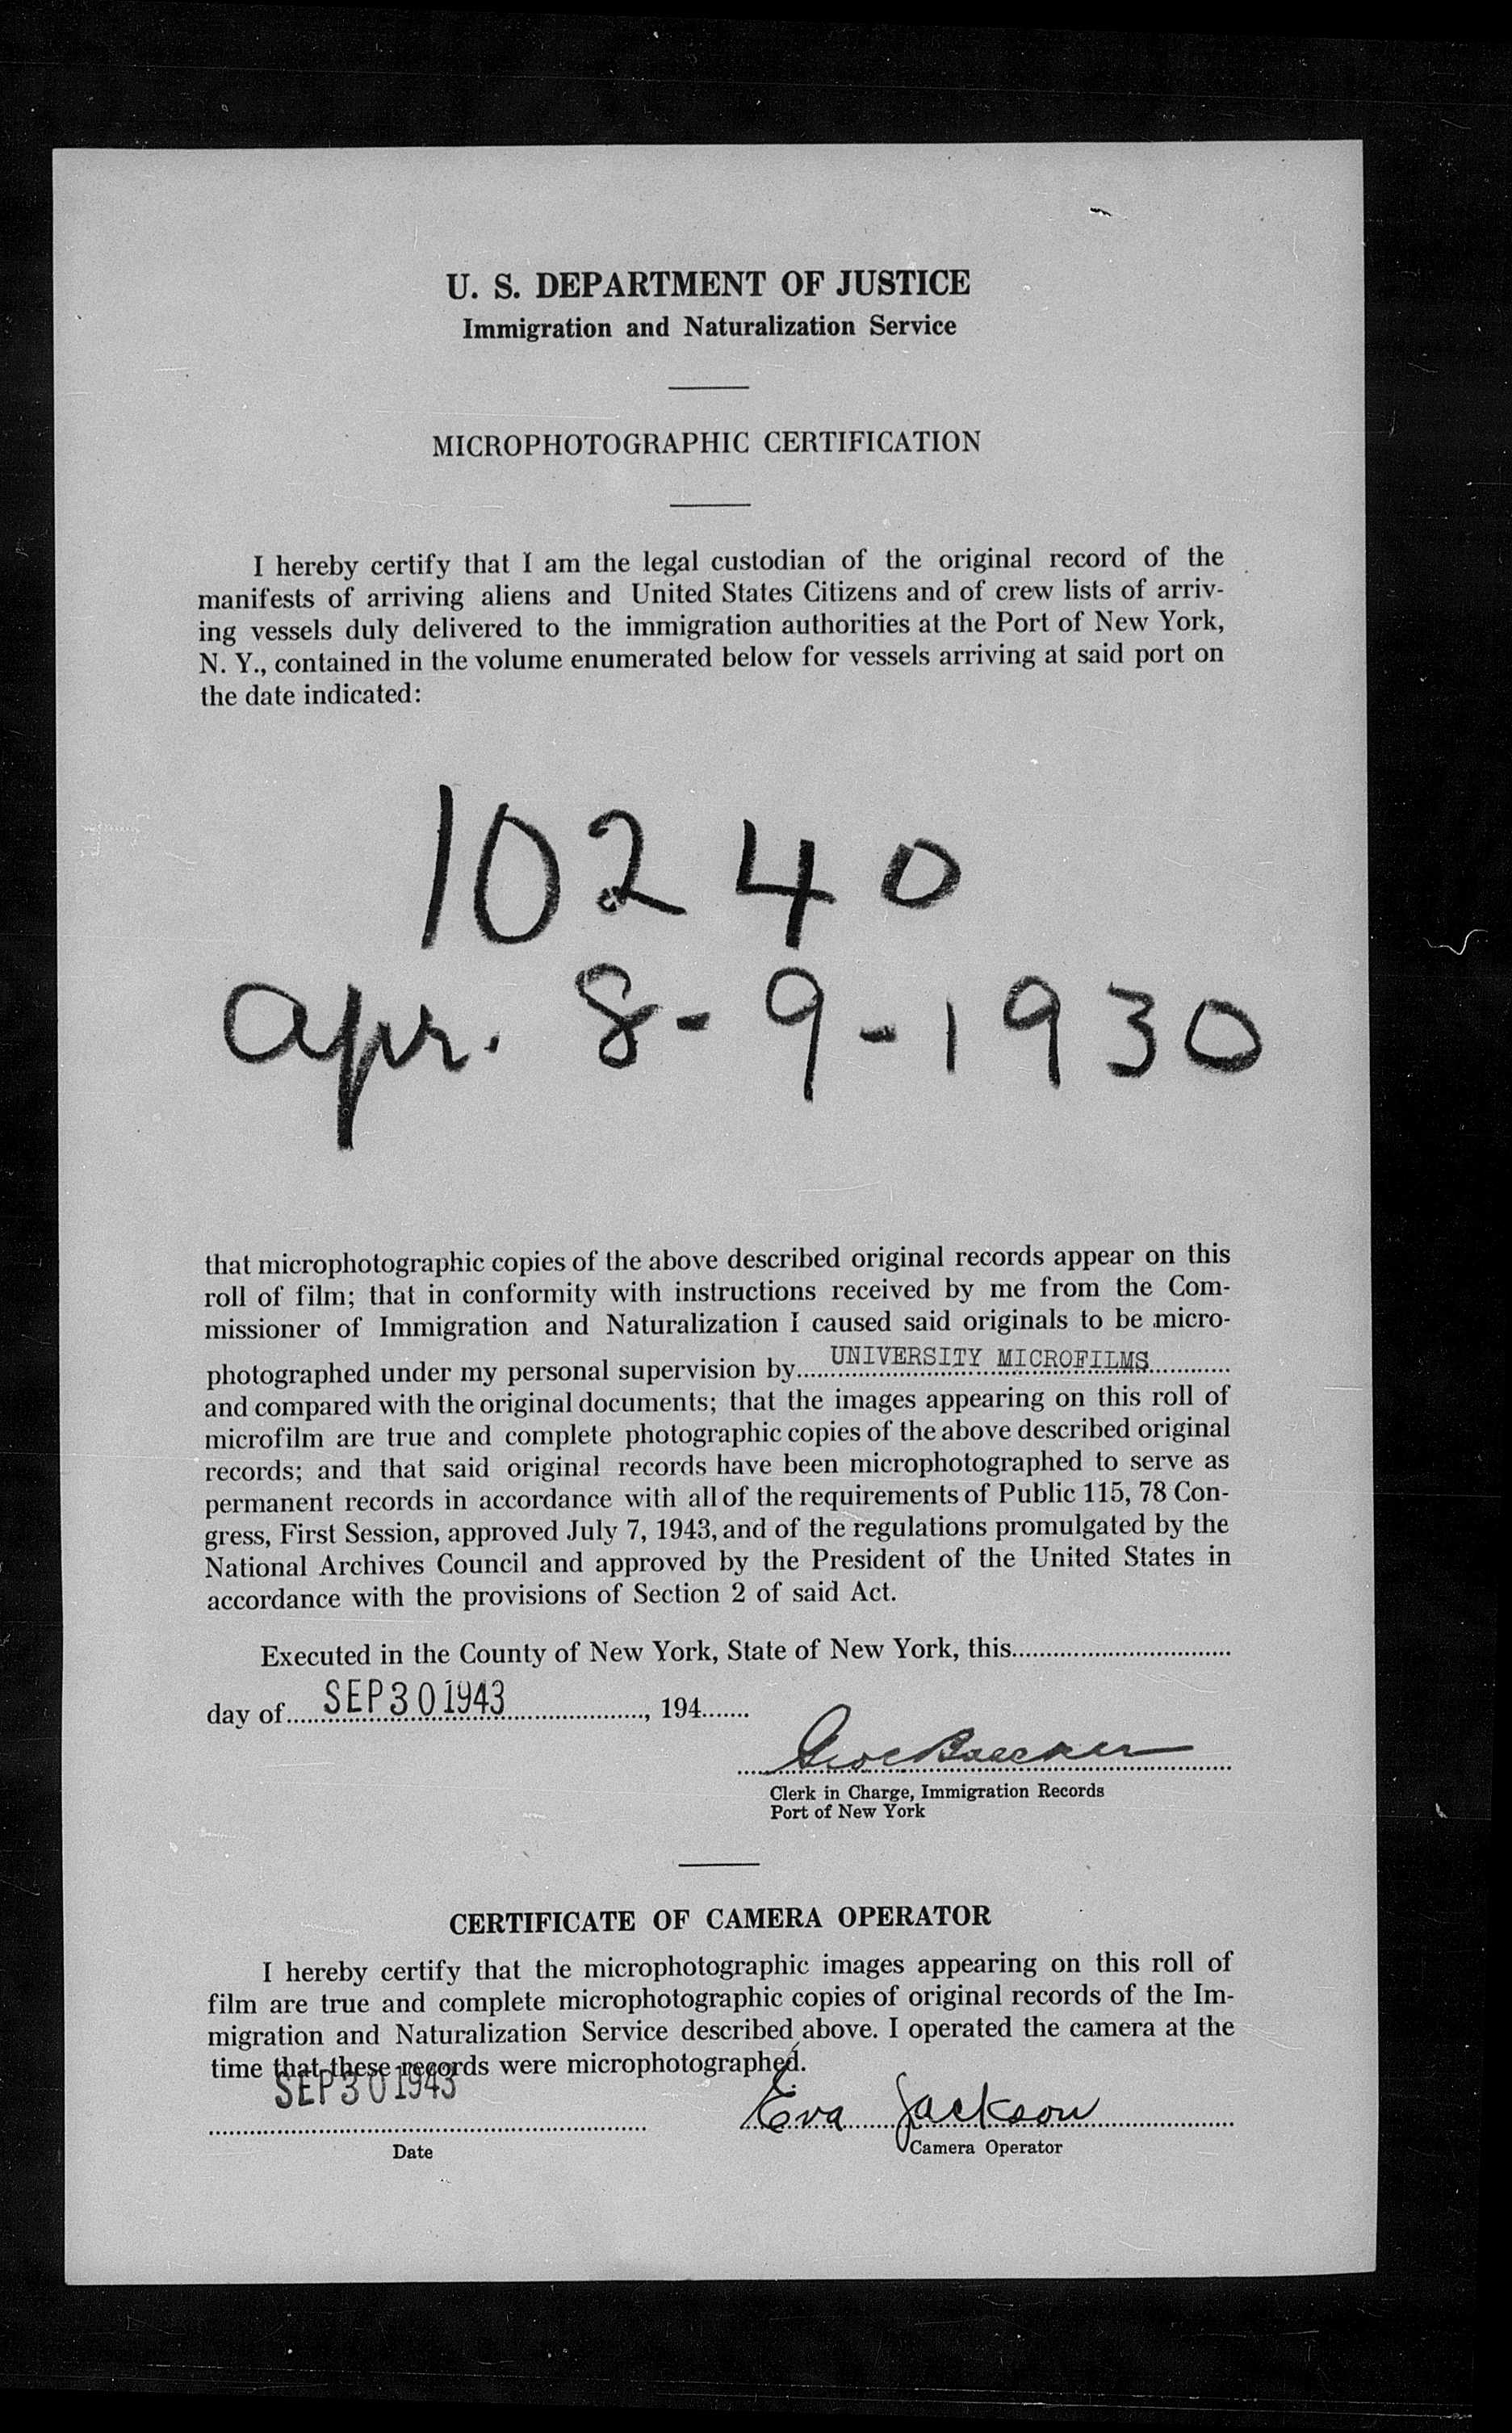 U. S. DEPARTMENT OF JUSTICE
Immigration and Naturalization Service
MICROPHOTOGRAPHIC CERTIFICATION
I hereby certify that I am the legal custodian of the original record of the
manifests of arriving aliens and United States Citizens and of crew lists of arriv-
ing vessels duly delivered to the immigration authorities at the Port of New York,
N. Y., contained in the volume enumerated below for vessels arriving at said port on
the date indicated:
10240
apr. 8-9-1930
that microphotographic copies of the above described original records appear on this
roll of film; that in conformity with instructions received by me from the Com-
missioner of Immigration and Naturalization I caused said originals to be micro-
photographed under my personal supervision by UNIVERSITY MICROFILMS
and compared with the original documents; that the images appearing on this roll of
microfilm are true and complete photographic copies of the above described original
records; and that said original records have been microphotographed to serve as
permanent records in accordance with all of the requirements of Public 115, 78 Con-
gress, First Session, approved July 7, 1943, and of the regulations promulgated by the
National Archives Council and approved by the President of the United States in
accordance with the provisions of Section 2 of said Act.
Executed in the County of New York, State of New York, this
day of SEP 30 1943, 194
Clerk in Charge, Immigration Records
Port of New York
CERTIFICATE OF CAMERA OPERATOR
I hereby certify that the microphotographic images appearing on this roll of
film are true and complete microphotographic copies of original records of the Im-
migration and Naturalization Service described above. I operated the camera at the
time that these records were microphotographed.
SEP 30 1943 Eva Jackson
Date Camera Operator